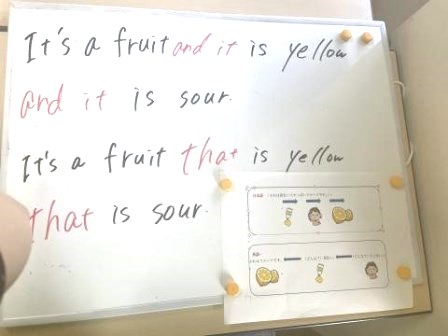 It's a fruit and it is yellow
and it is sour.
It's a fruit that is yellow
that is sour.